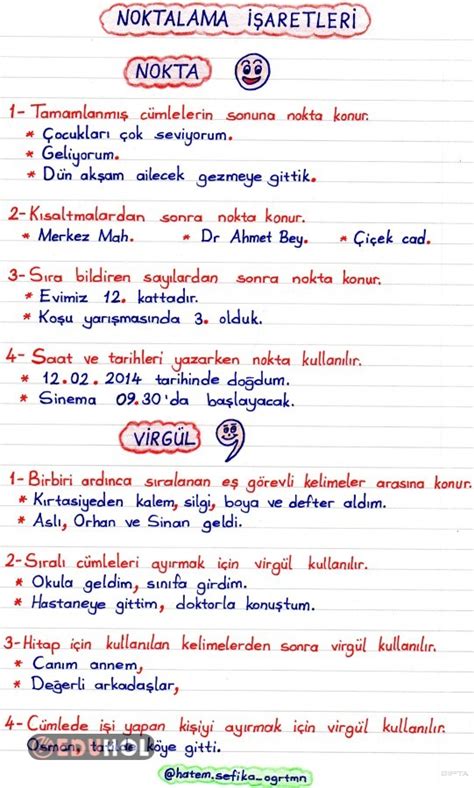 NOKTALAMA İŞARETLERİ
NOKTA
1- Tamamlanmış cümlelerin sonuna nokta konur.
* Çocukları çok seviyorum.
* Geliyorum.
* Dün akşam ailecek gezmeye gittik.
2- Kısaltmalardan sonra nokta konur.
* Merkez Mah. * Dr Ahmet Bey. * Çiçek cad.
3- Sıra bildiren sayılardan sonra nokta konur.
* Evimiz 12. kattadır.
* Koşu yarışmasında 3. olduk.
4- Saat ve tarihleri yazarken nokta kullanılır.
* 12.02.2014 tarihinde doğdum.
* Sinema 09.30'da başlayacak.
VİRGÜL
1- Birbiri ardınca sıralanan eş görevli kelimeler arasına konur.
* Kırtasiyeden kalem, silgi, boya ve defter aldım.
* Aslı, Orhan ve Sinan geldi.
2- Sıralı cümleleri ayırmak için virgül kullanılır.
* Okula geldim, sınıfa girdim.
* Hastaneye gittim, doktorla konuştum.
3- Hitap için kullanılan kelimelerden sonra virgül kullanılır.
* Canım annem,
* Değerli arkadaşlar,
4- Cümlede işi yapan kişiyi ayırmak için virgül kullanılır.
Osman, tatilde köye gitti.
@hatem.sefika_ogrtmn